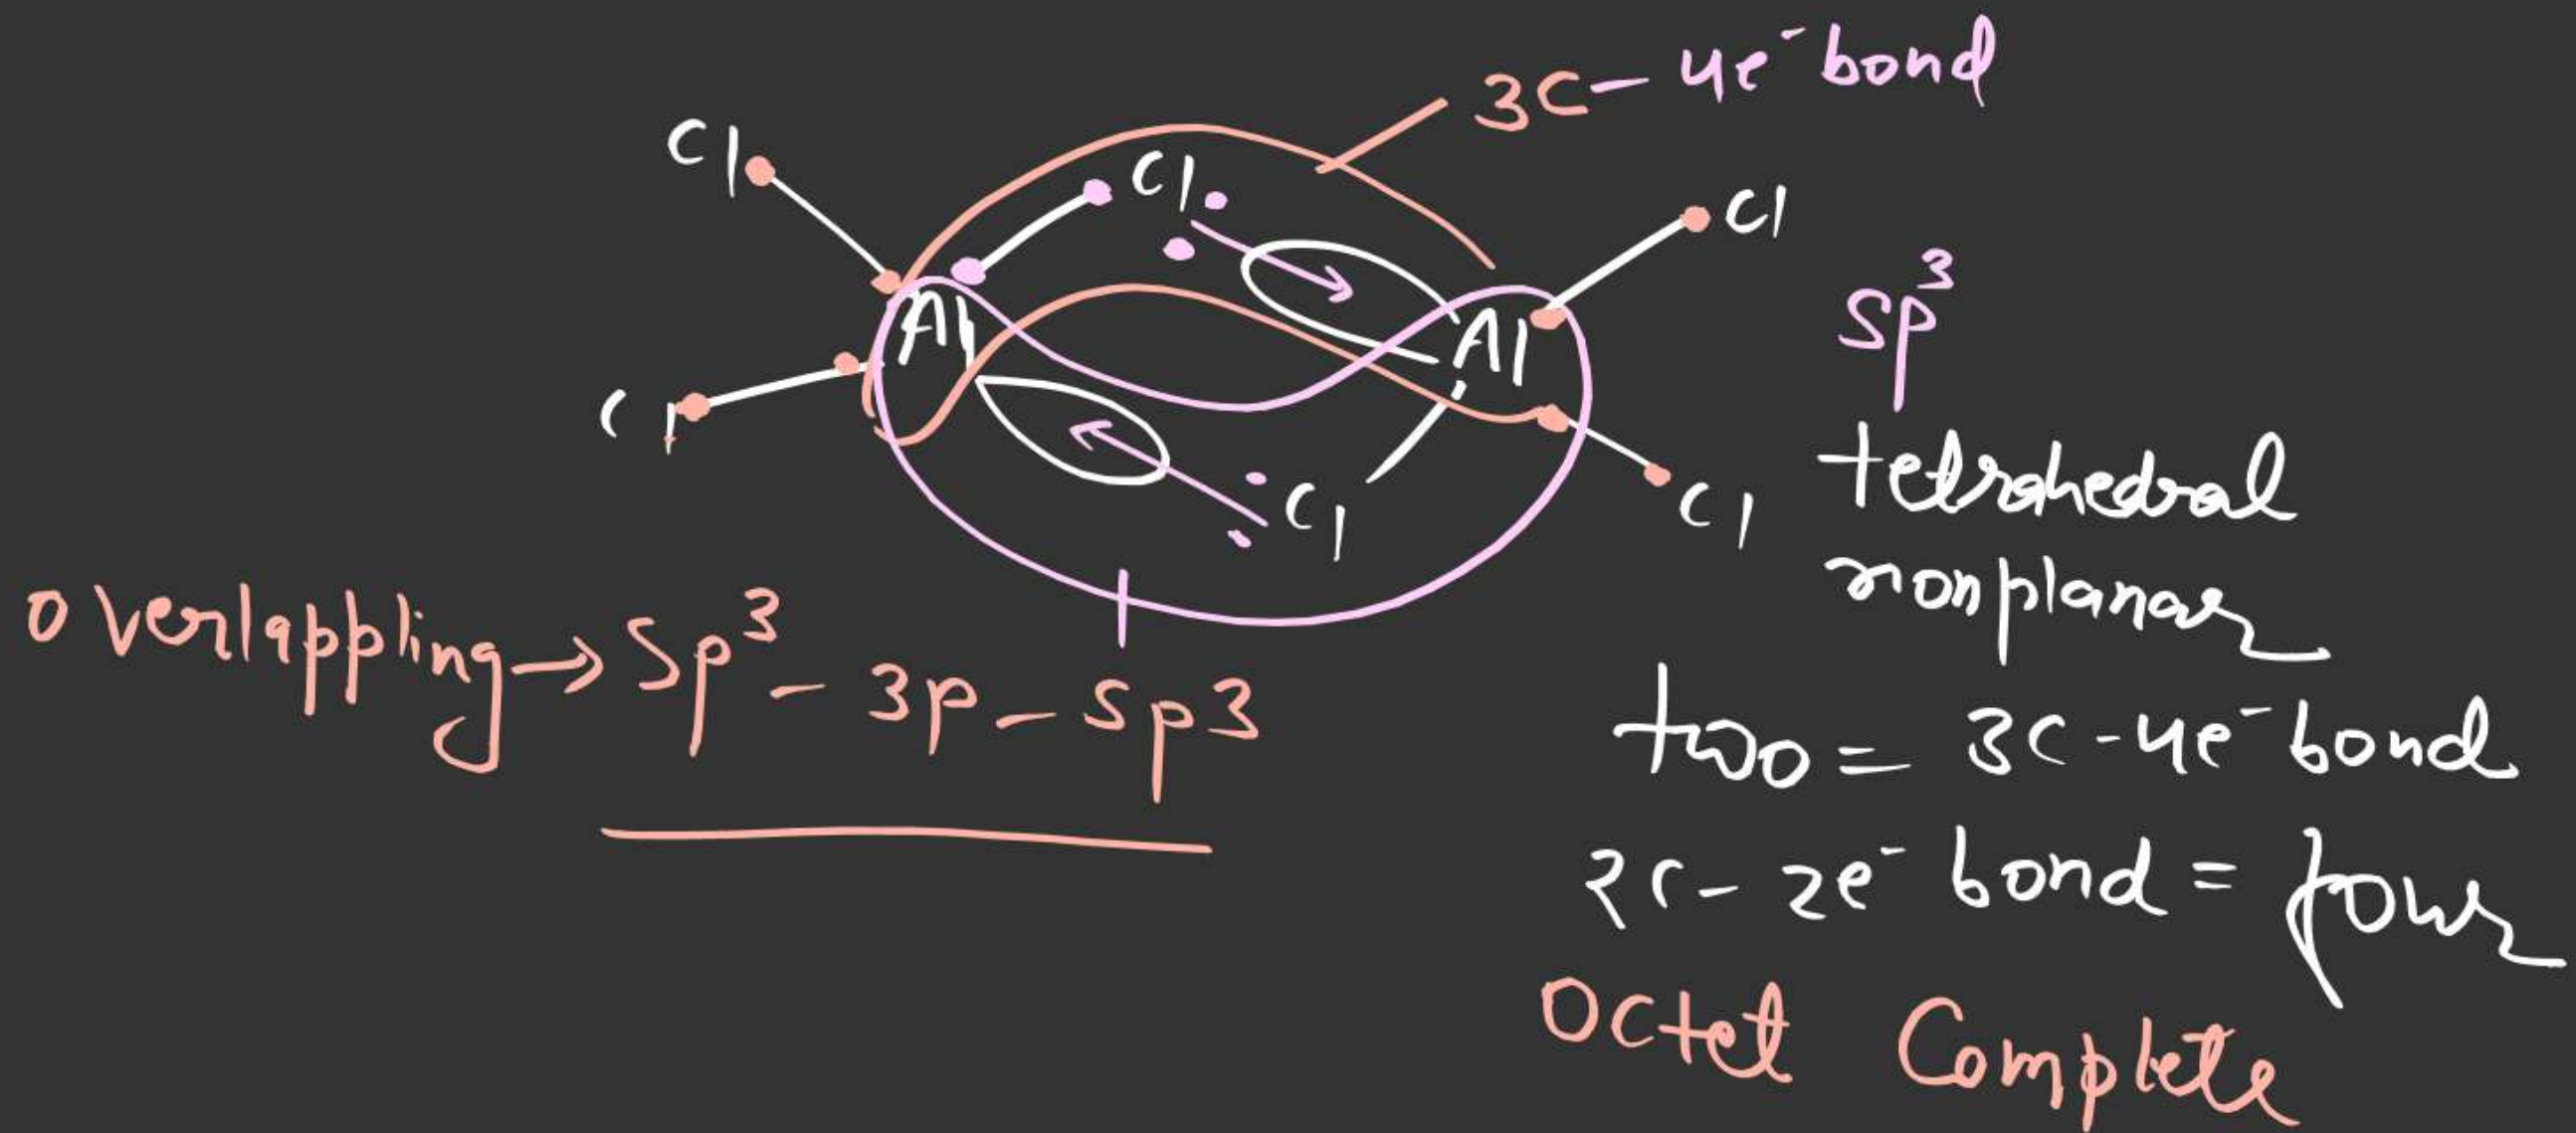 3C- 4e⁻ bond
Cl
Cl
Cl
Al
Al
Cl
Cl
Cl
sp³
tetrahedral
nonplanar
Overlappling → Sp³ - 3p - Sp3
two = 3C-4e⁻ bond
2C- 2e⁻ bond = four
Octet Complete